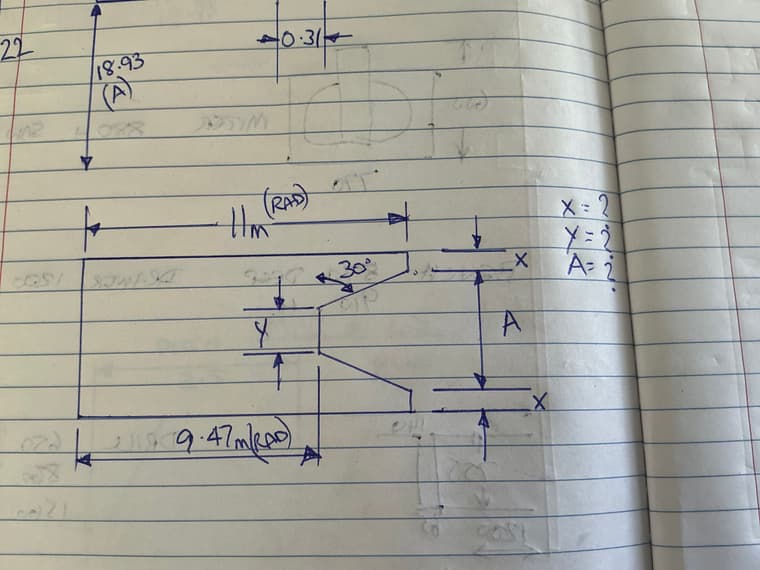 22
0.31
18.93
(A)
(RAD)
11m
x = ?
y = ?
A = ?
30°
x
Y
A
x
9.47m(RAD)